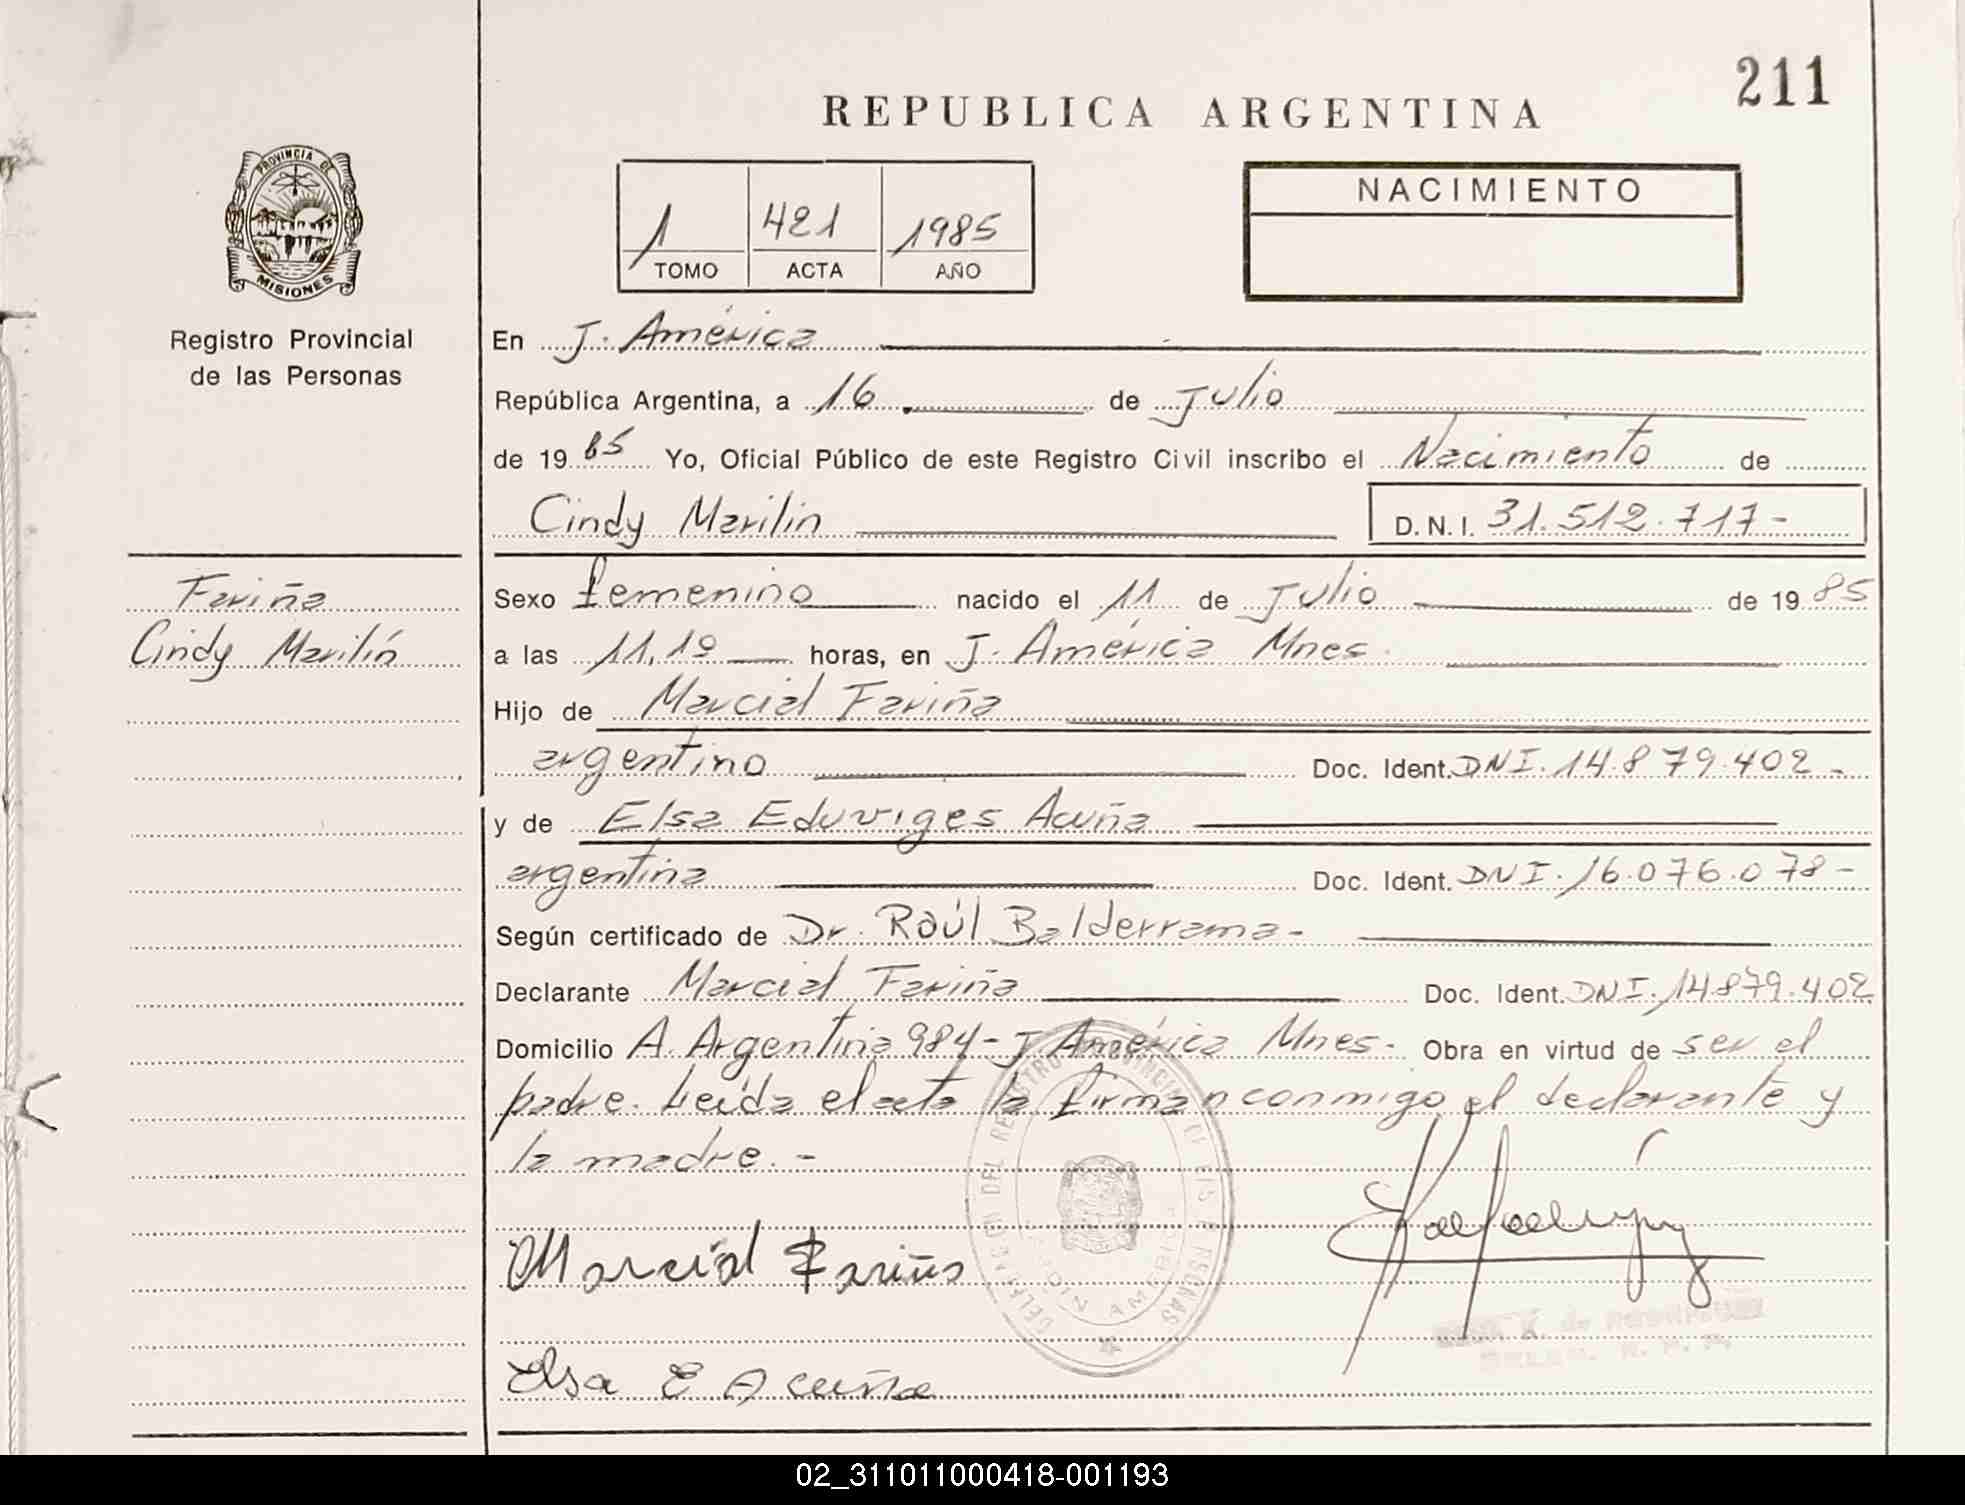 211
REPUBLICA ARGENTINA
PROVINCIA DE
MISIONES
Registro Provincial
de las Personas
1 421 1985
TOMO ACTA AÑO
NACIMIENTO
En J. América
República Argentina, a 16 de Julio
de 1985 Yo, Oficial Público de este Registro Civil inscribo el Nacimiento de
Cindy Marilin D.N.I. 31.512.717-
Fariña
Cindy Marilín
Sexo femenino nacido el 11 de Julio de 1985
a las 11,10 horas, en J. América Mnes.
Hijo de Marcial Fariña
argentino Doc. Ident. DNI. 14.879.402-
y de Elsa Eduviges Acuña
argentina Doc. Ident. DNI. 16.076.078-
Según certificado de Dr. Raúl Balderrama-
Declarante Marcial Fariña Doc. Ident. DNI. 14.879.402
Domicilio A. Argentina 984- J. América Mnes- Obra en virtud de ser el
padre. Leída el acta la firman conmigo el declarante y
la madre.-
Marcial Fariña
Elsa E Acuña
02_311011000418-001193